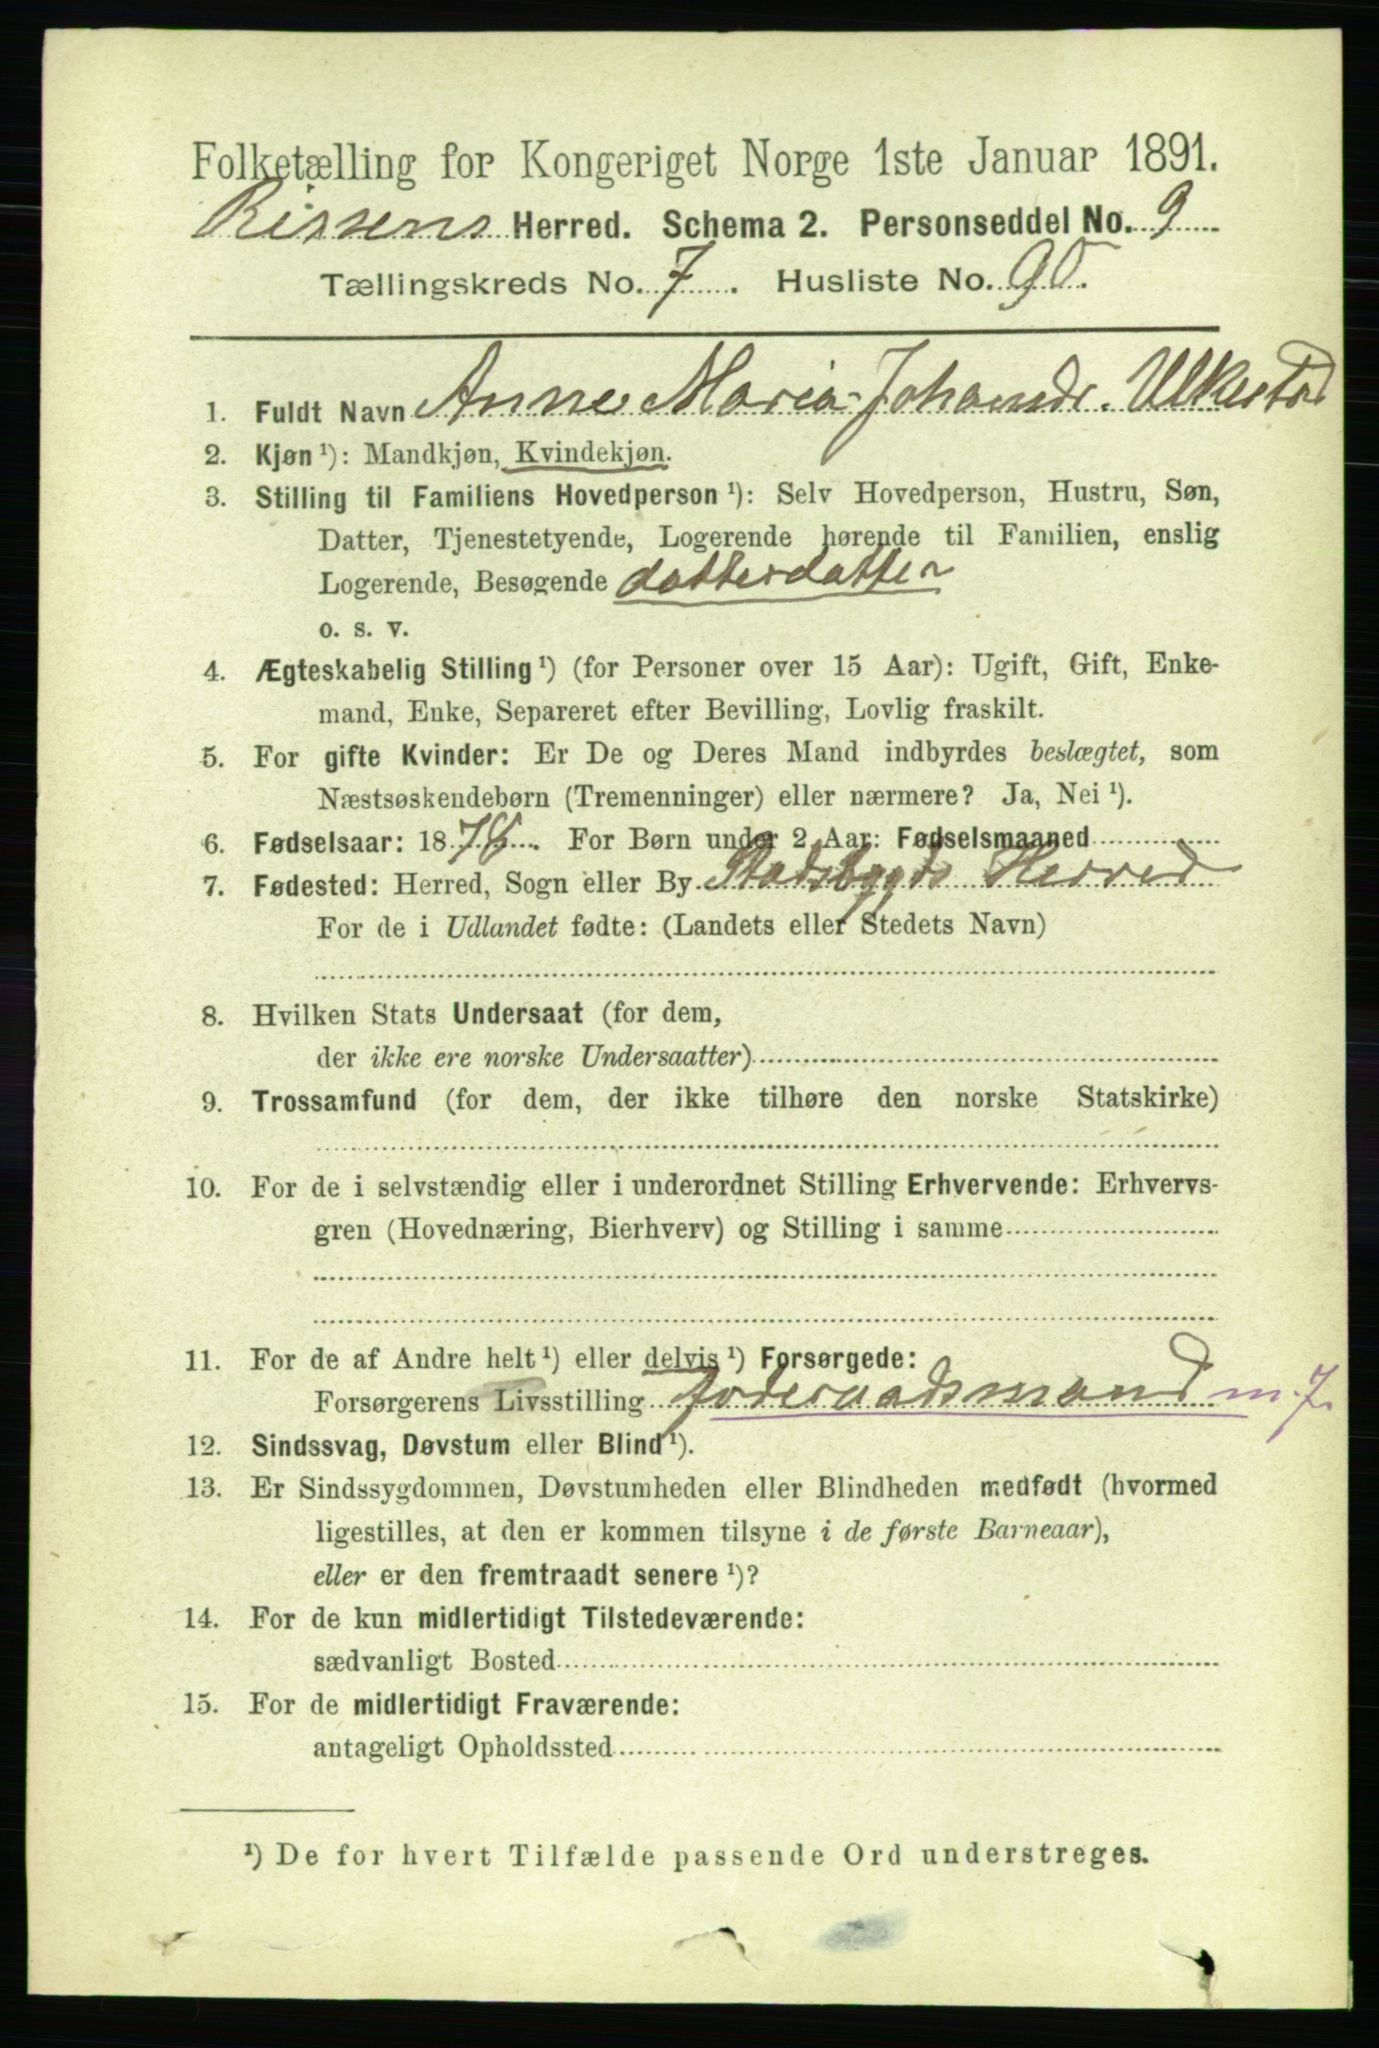 Folketælling for Kongeriget Norge 1ste Januar 1891.
Rissens Herred. Schema 2. Personseddel No. 9
Tællingskreds No. 7. Husliste No. 90.
1. Fuldt Navn Anne Maria Johansdr. Ulkestad
2. Kjøn ¹): Mandkjøn, Kvindekjøn.
3. Stilling til Familiens Hovedperson ¹): Selv Hovedperson, Hustru, Søn,
Datter, Tjenestetyende, Logerende hørende til Familien, enslig
Logerende, Besøgende datterdatter
o. s. v.
4. Ægteskabelig Stilling ¹) (for Personer over 15 Aar): Ugift, Gift, Enke-
mand, Enke, Separeret efter Bevilling, Lovlig fraskilt.
5. For gifte Kvinder: Er De og Deres Mand indbyrdes beslægtet, som
Næstsøskendebørn (Tremenninger) eller nærmere? Ja, Nei ¹).
6. Fødselsaar: 1878. For Børn under 2 Aar: Fødselsmaaned
7. Fødested: Herred, Sogn eller By Stadsbygds Herred
For de i Udlandet fødte: (Landets eller Stedets Navn)
8. Hvilken Stats Undersaat (for dem,
der ikke ere norske Undersaatter)
9. Trossamfund (for dem, der ikke tilhøre den norske Statskirke)
10. For de i selvstændig eller i underordnet Stilling Erhvervende: Erhvervs-
gren (Hovednæring, Bierhverv) og Stilling i samme
11. For de af Andre helt ¹) eller delvis ¹) Forsørgede:
Forsørgerens Livsstilling foderaadsmand m. 7.
12. Sindssvag, Døvstum eller Blind ¹).
13. Er Sindssygdommen, Døvstumheden eller Blindheden medfødt (hvormed
ligestilles, at den er kommen tilsyne i de første Barneaar),
eller er den fremtraadt senere ¹)?
14. For de kun midlertidigt Tilstedeværende:
sædvanligt Bosted
15. For de midlertidigt Fraværende:
antageligt Opholdssted
¹) De for hvert Tilfælde passende Ord understreges.